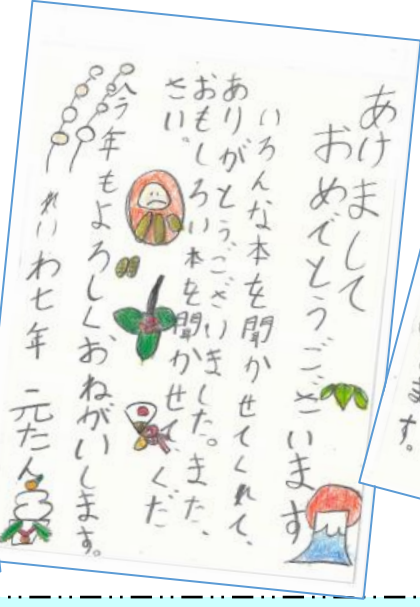 あけまして
おめでとうございます
いろんな本を聞かせてくれて、
ありがとうございました。また、
おもしろい本を聞かせてくだ
さい。
今年もよろしくおねがいします。
れいわ七年 元たん
ます。